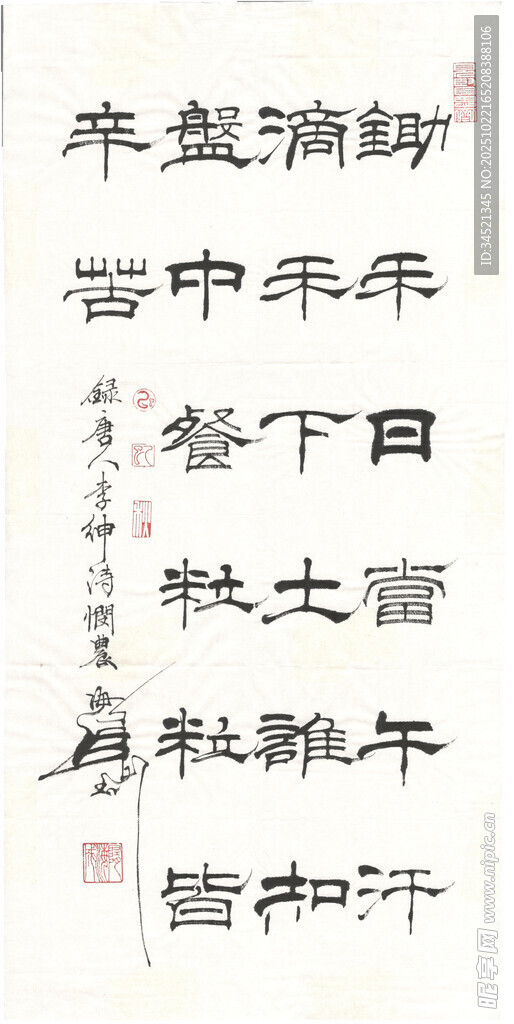 鋤禾日當午汗
滴禾下土誰知
盤中餐粒粒皆
辛苦
録唐人李紳詩憫農
ID:34521345 NO:20251022165208388106
昵享网 www.nipic.cn